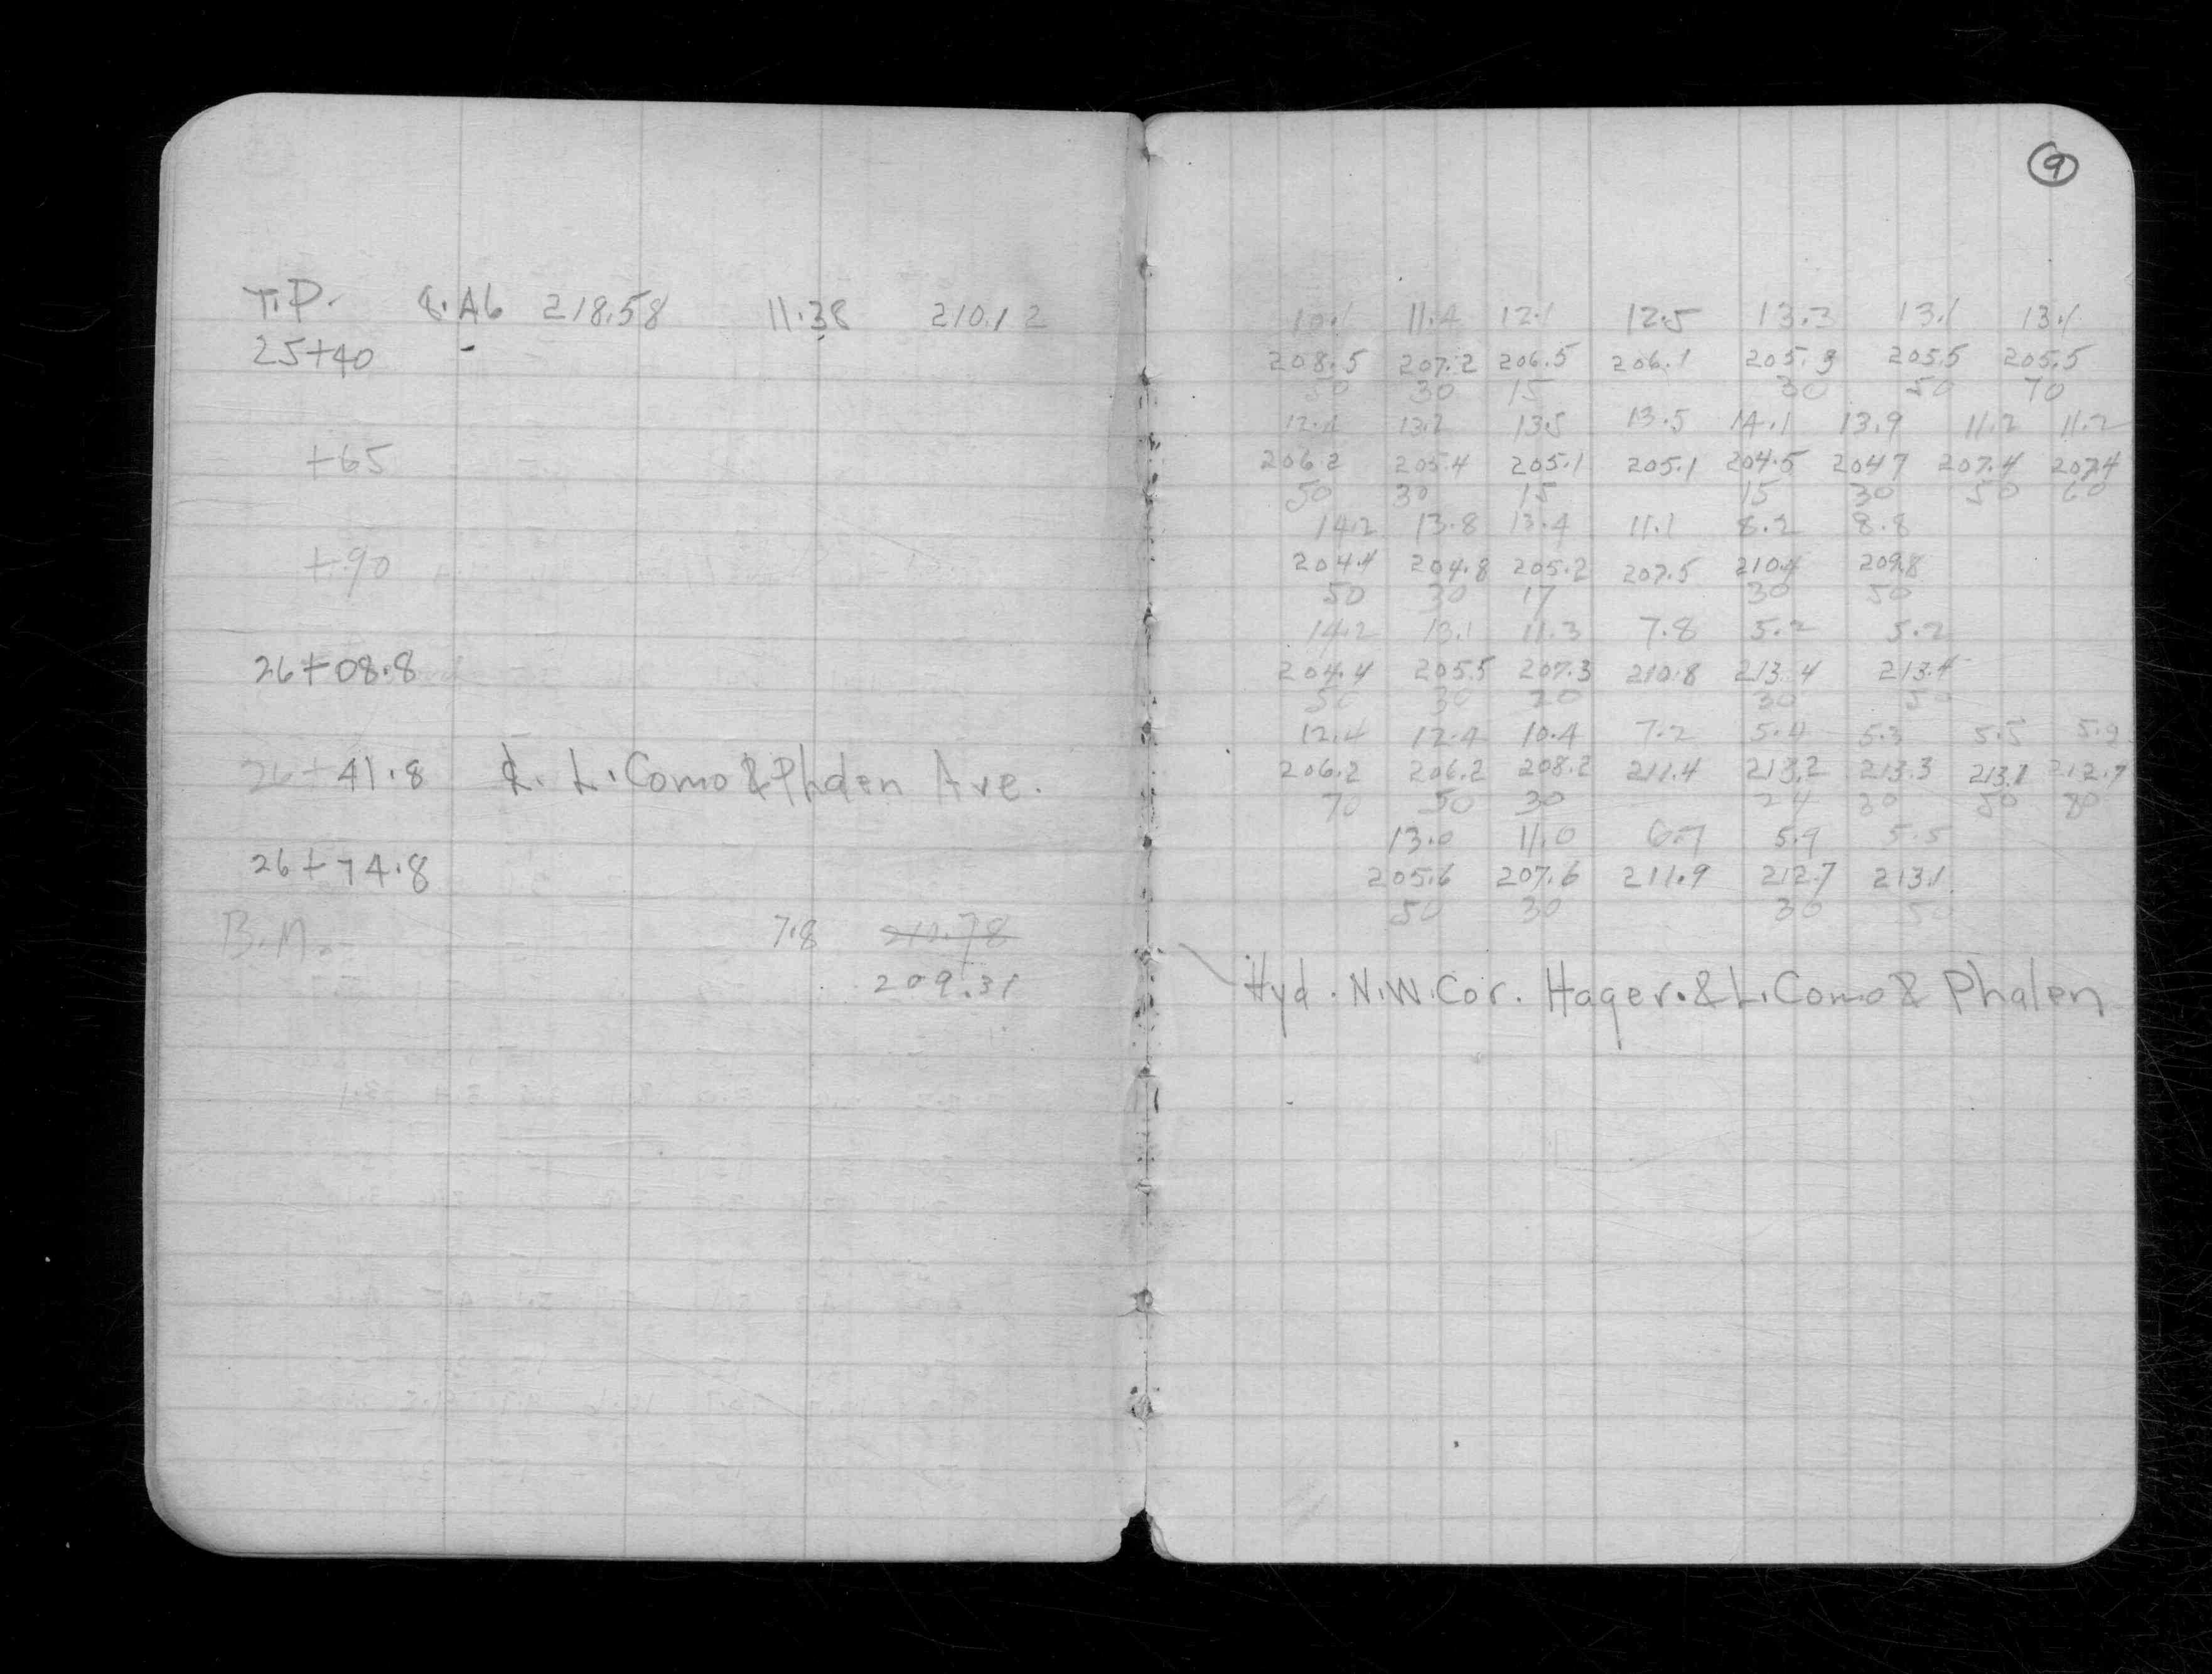 9
T.P. 8.46 218.58 11.38 210.12
25+40 -
+65
+90
26+08.8
26+41.8 ℄. L. Como & Phalen Ave.
26+74.8
B.M. 7.8 210.78
209.31
10.1 11.4 12.1 12.5 13.3 13.1 13.1
208.5 207.2 206.5 206.1 205.3 205.5 205.5
50 30 15 30 50 70
12.4 13.2 13.5 13.5 14.1 13.9 11.2 11.2
206.2 205.4 205.1 205.1 204.5 204.7 207.4 207.4
50 30 15 15 30 50 60
14.2 13.8 13.4 11.1 8.2 8.8
204.4 204.8 205.2 207.5 210.4 209.8
50 30 17 30 50
14.2 13.1 11.3 7.8 5.2 5.2
204.4 205.5 207.3 210.8 213.4 213.4
50 30 20 30 50
12.4 12.4 10.4 7.2 5.4 5.3 5.5 5.9
206.2 206.2 208.2 211.4 213.2 213.3 213.1 212.7
70 50 30 24 30 50 80
13.0 11.0 6.7 5.9 5.5
205.6 207.6 211.9 212.7 213.1
50 30 30 50
Hyd. N.W. Cor. Hager. & L. Como & Phalen